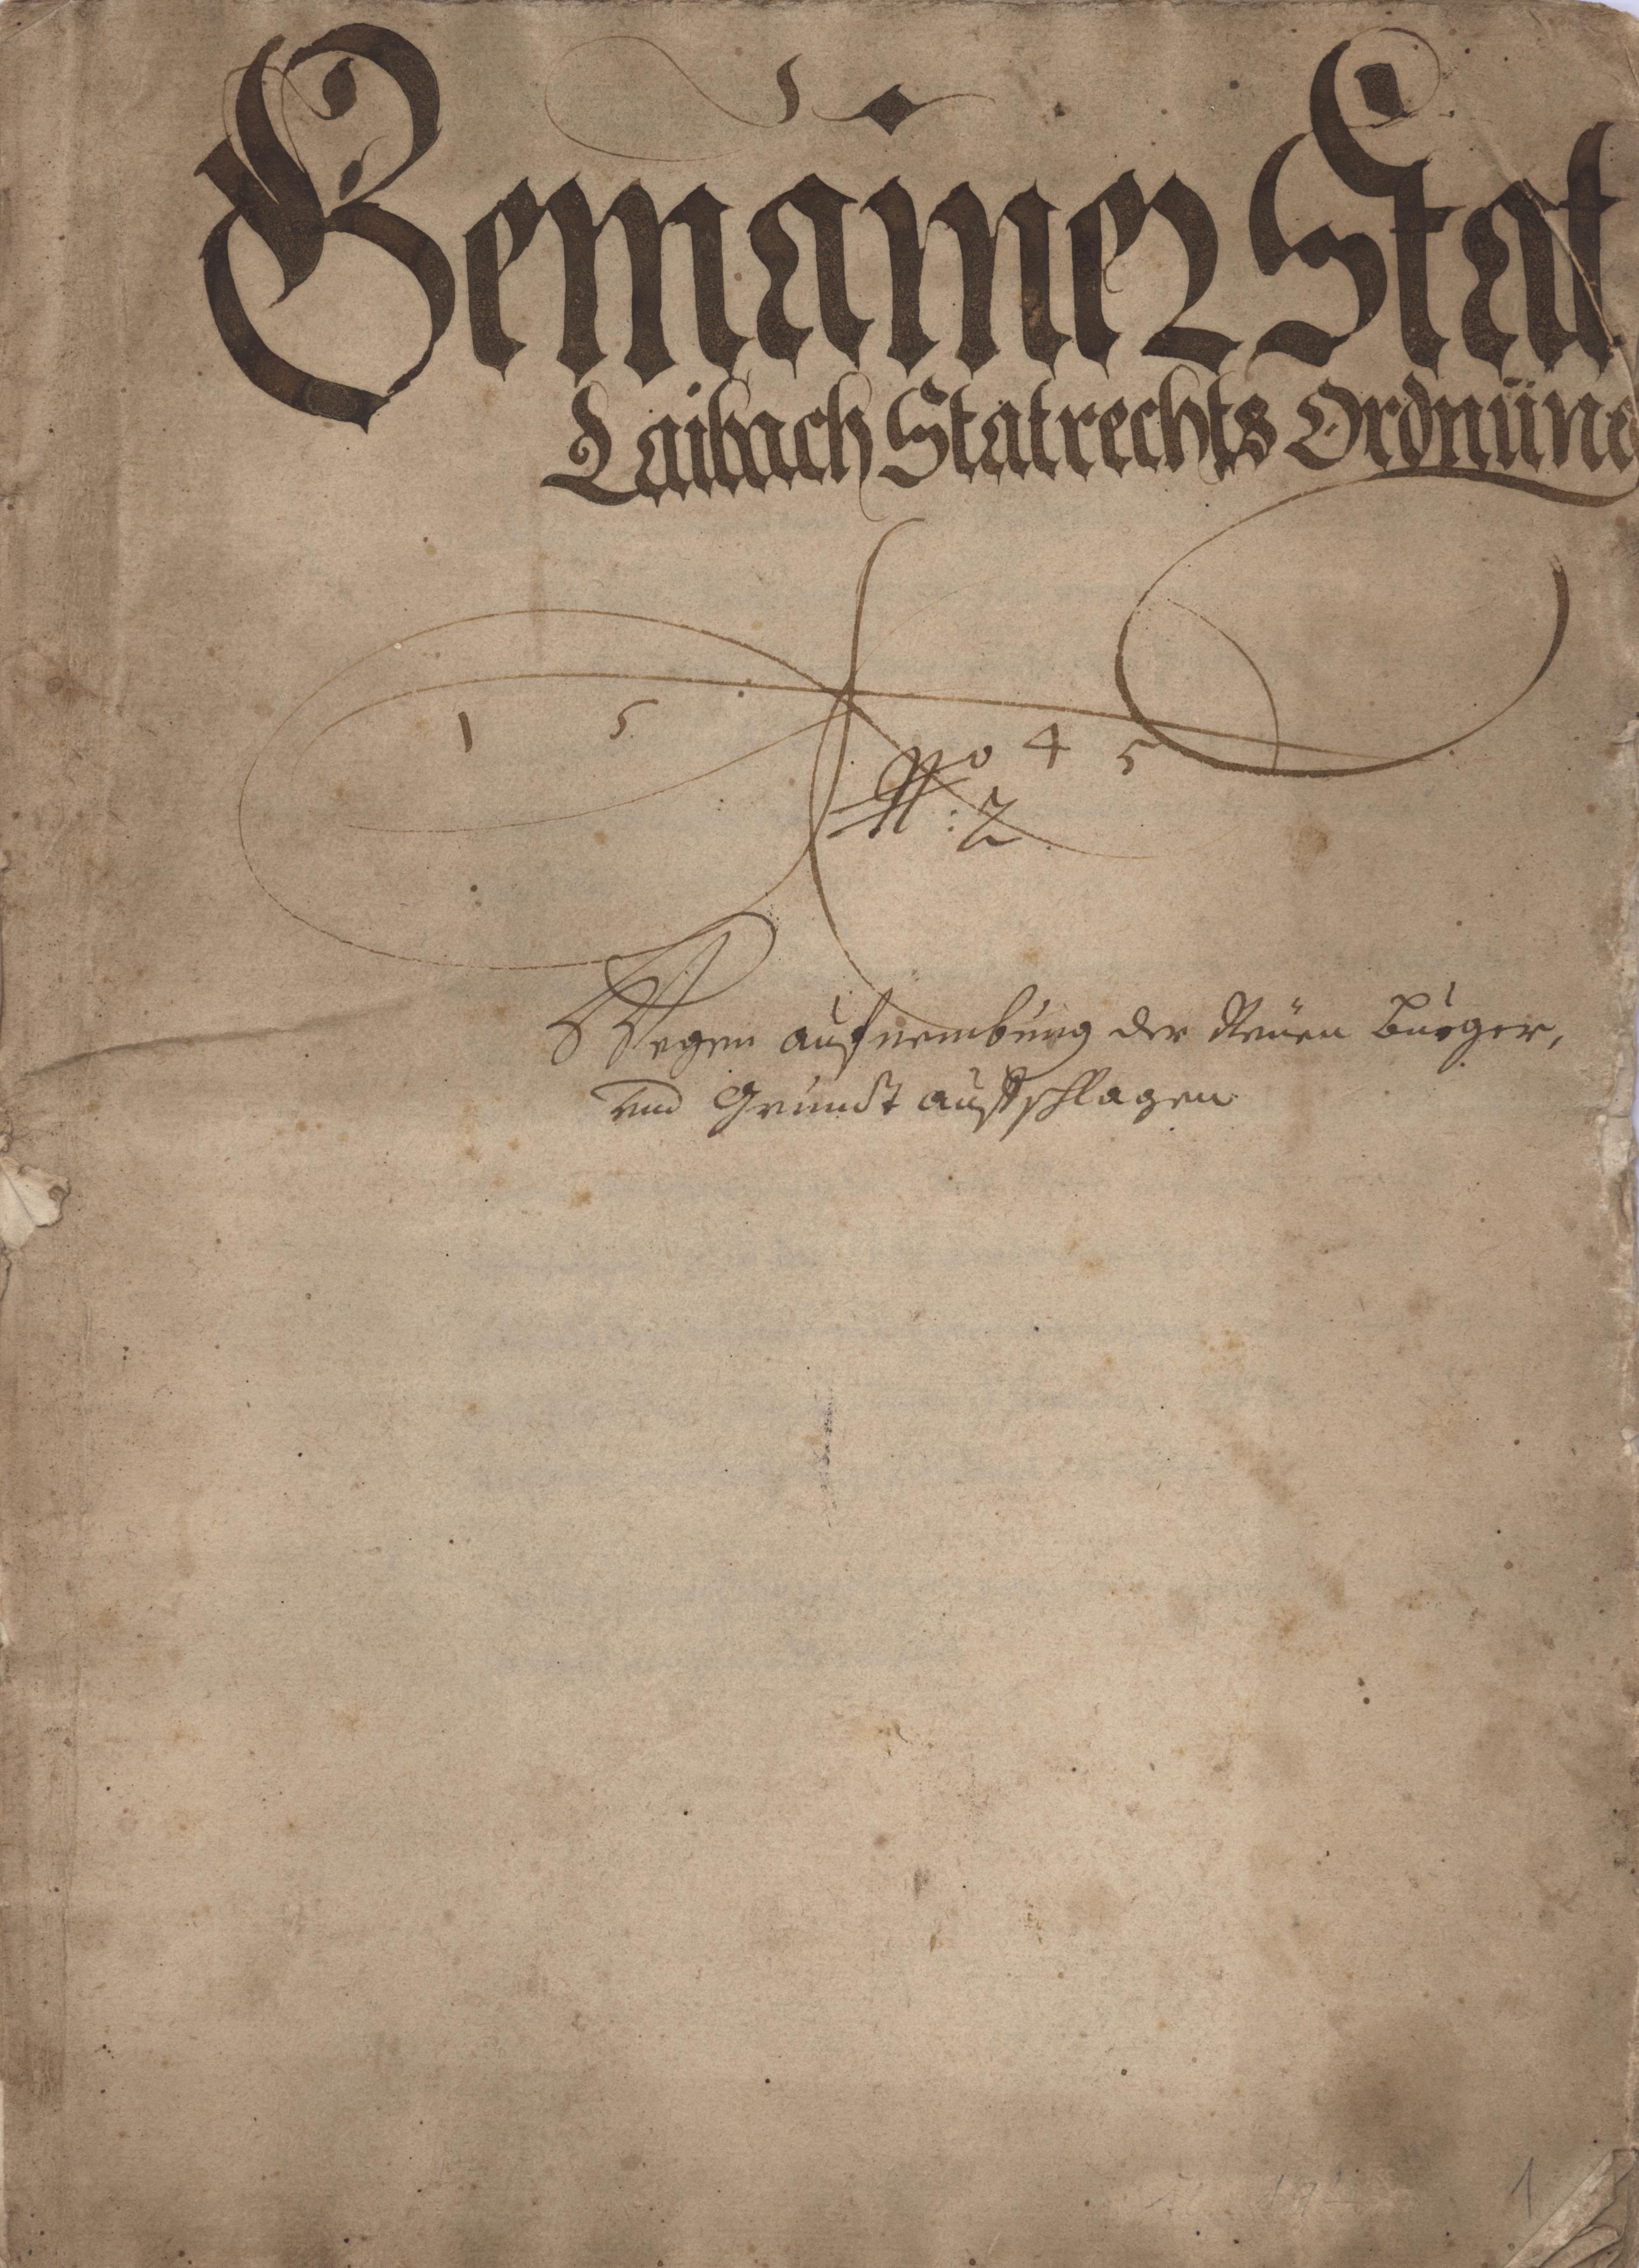 Gemainer Stat
Laibach Statrechts Ordnŭng
1 5 4 5
No : 2
Wegen aufnembŭng der Neŭen Bŭrger,
vnd Grŭndt aŭsschlagen
1